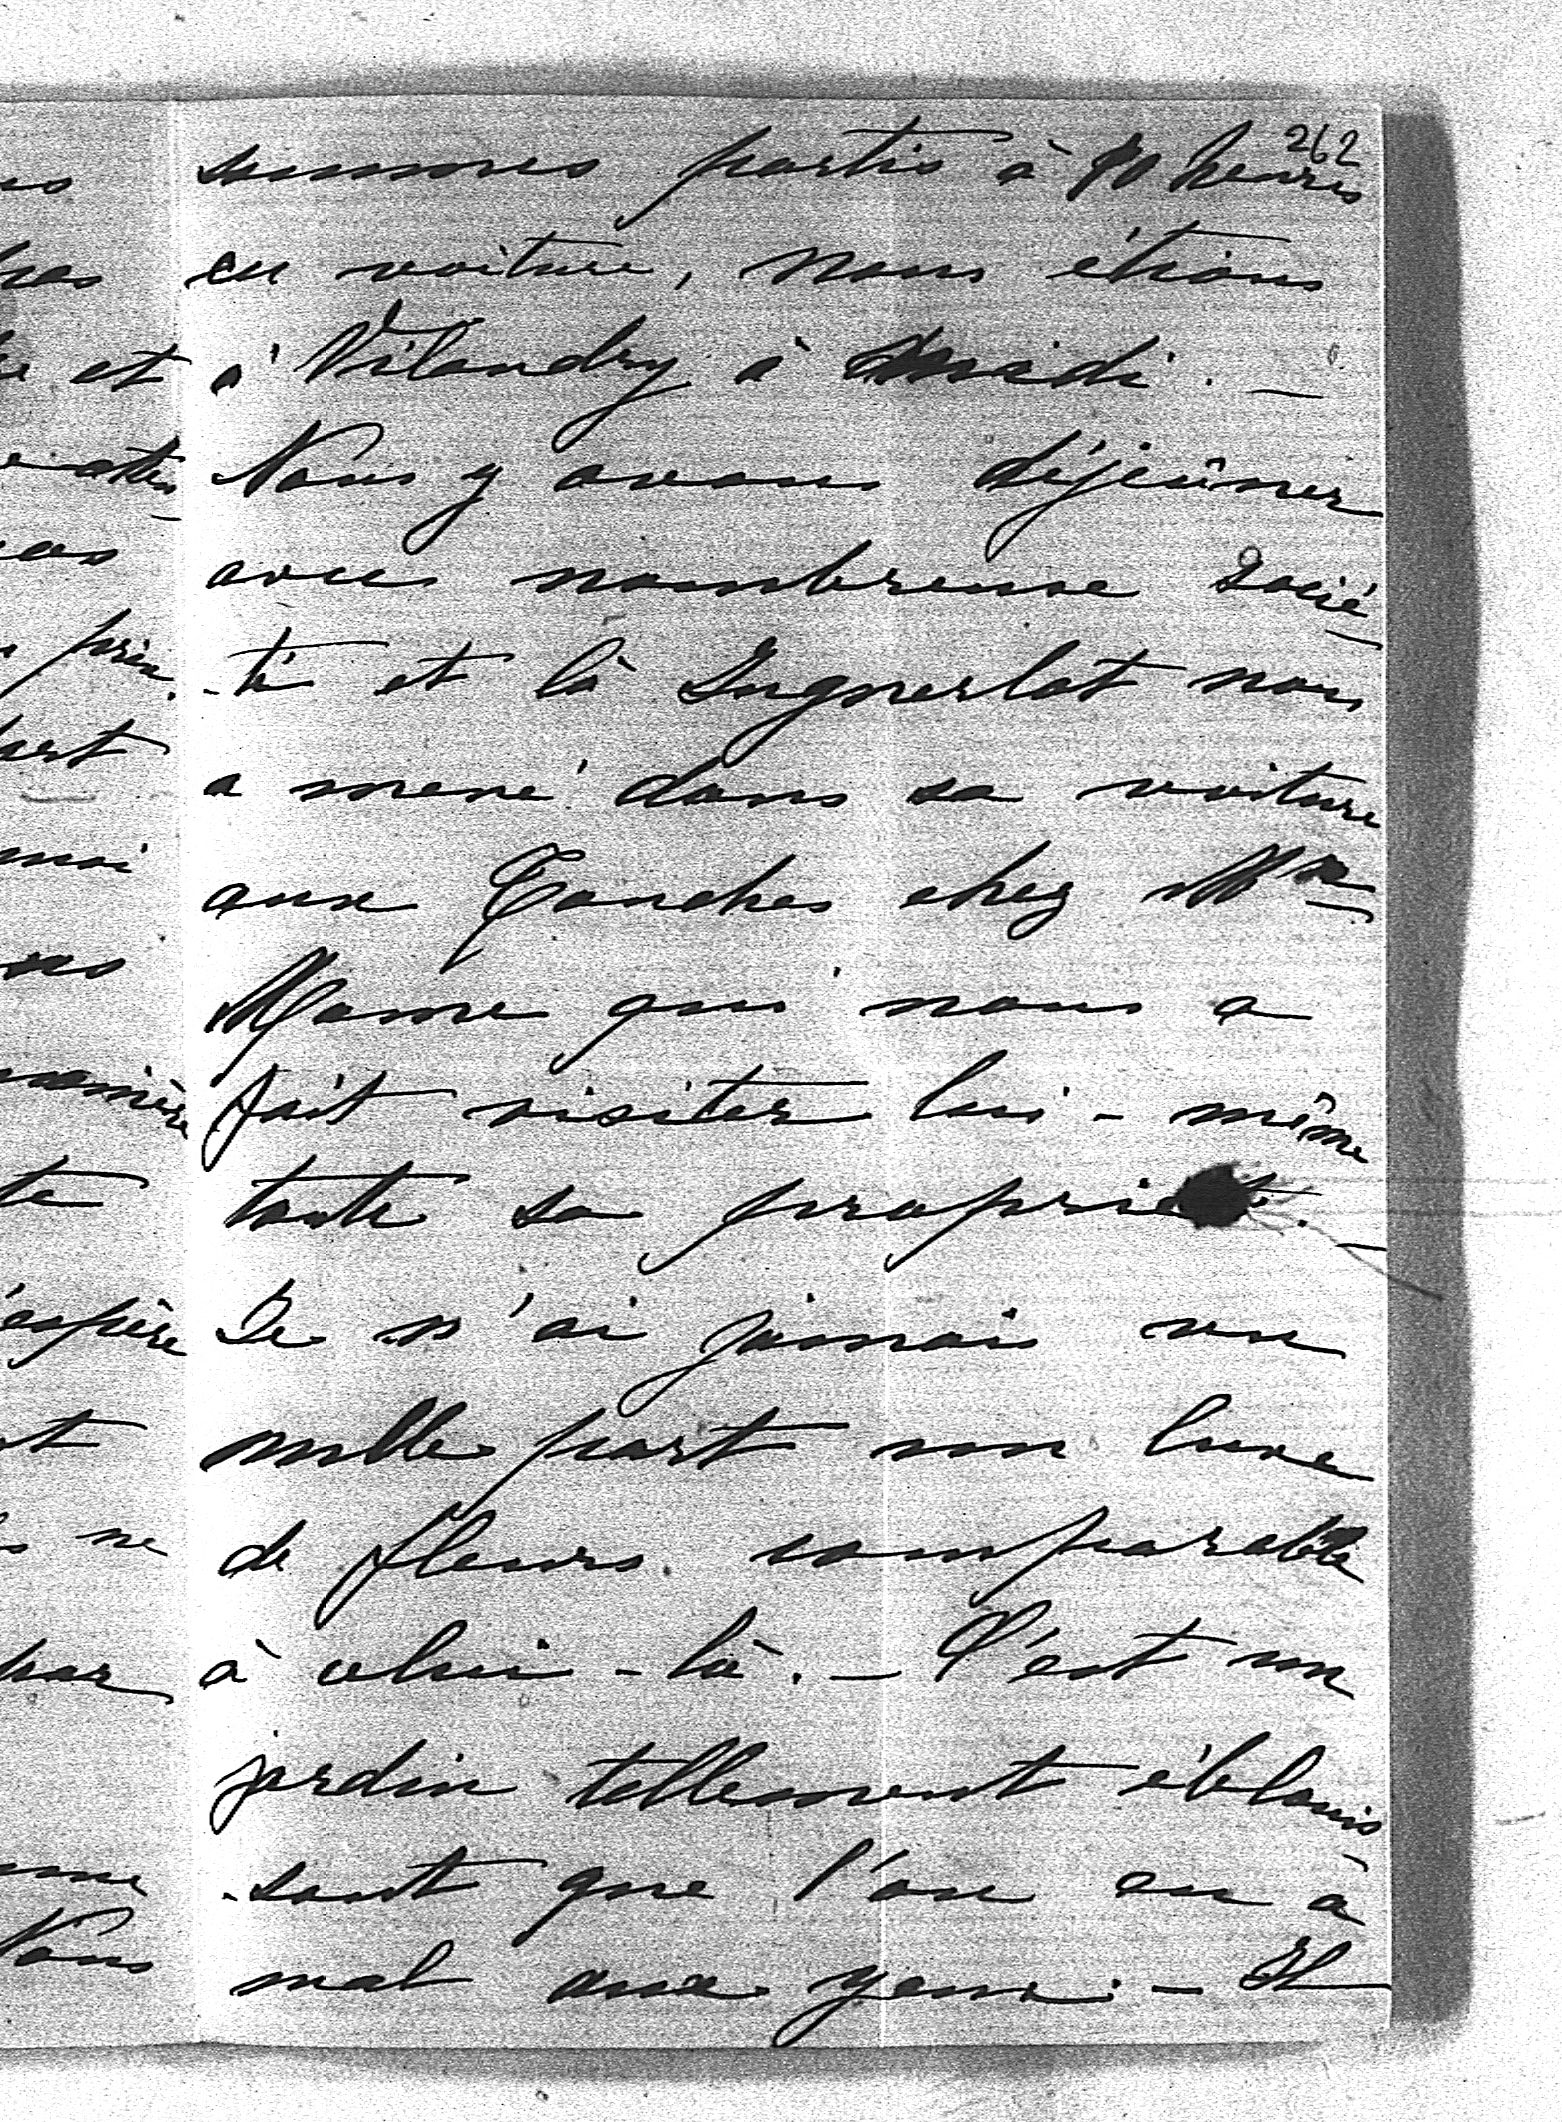 262
sommes partis à 10 heures
en voiture, nous étions
à Vilandry à midi. —
Nous y avons déjeûner
avec nombreuse socié-
-té et là Guguerlot nous
a mené dans sa voiture
aux Touches chez Mr
Mame qui nous a
fait visiter lui-même
toute sa propriété. —
Je n'ai jamais vu
nulle part un luxe
de fleurs comparable
à celui-là. — C'est un
jardin tellement éblouis-
-sant que l'on en a
mal aux yeux. — Il
et
prin-
moi
manière
espère
ne
par
Nous